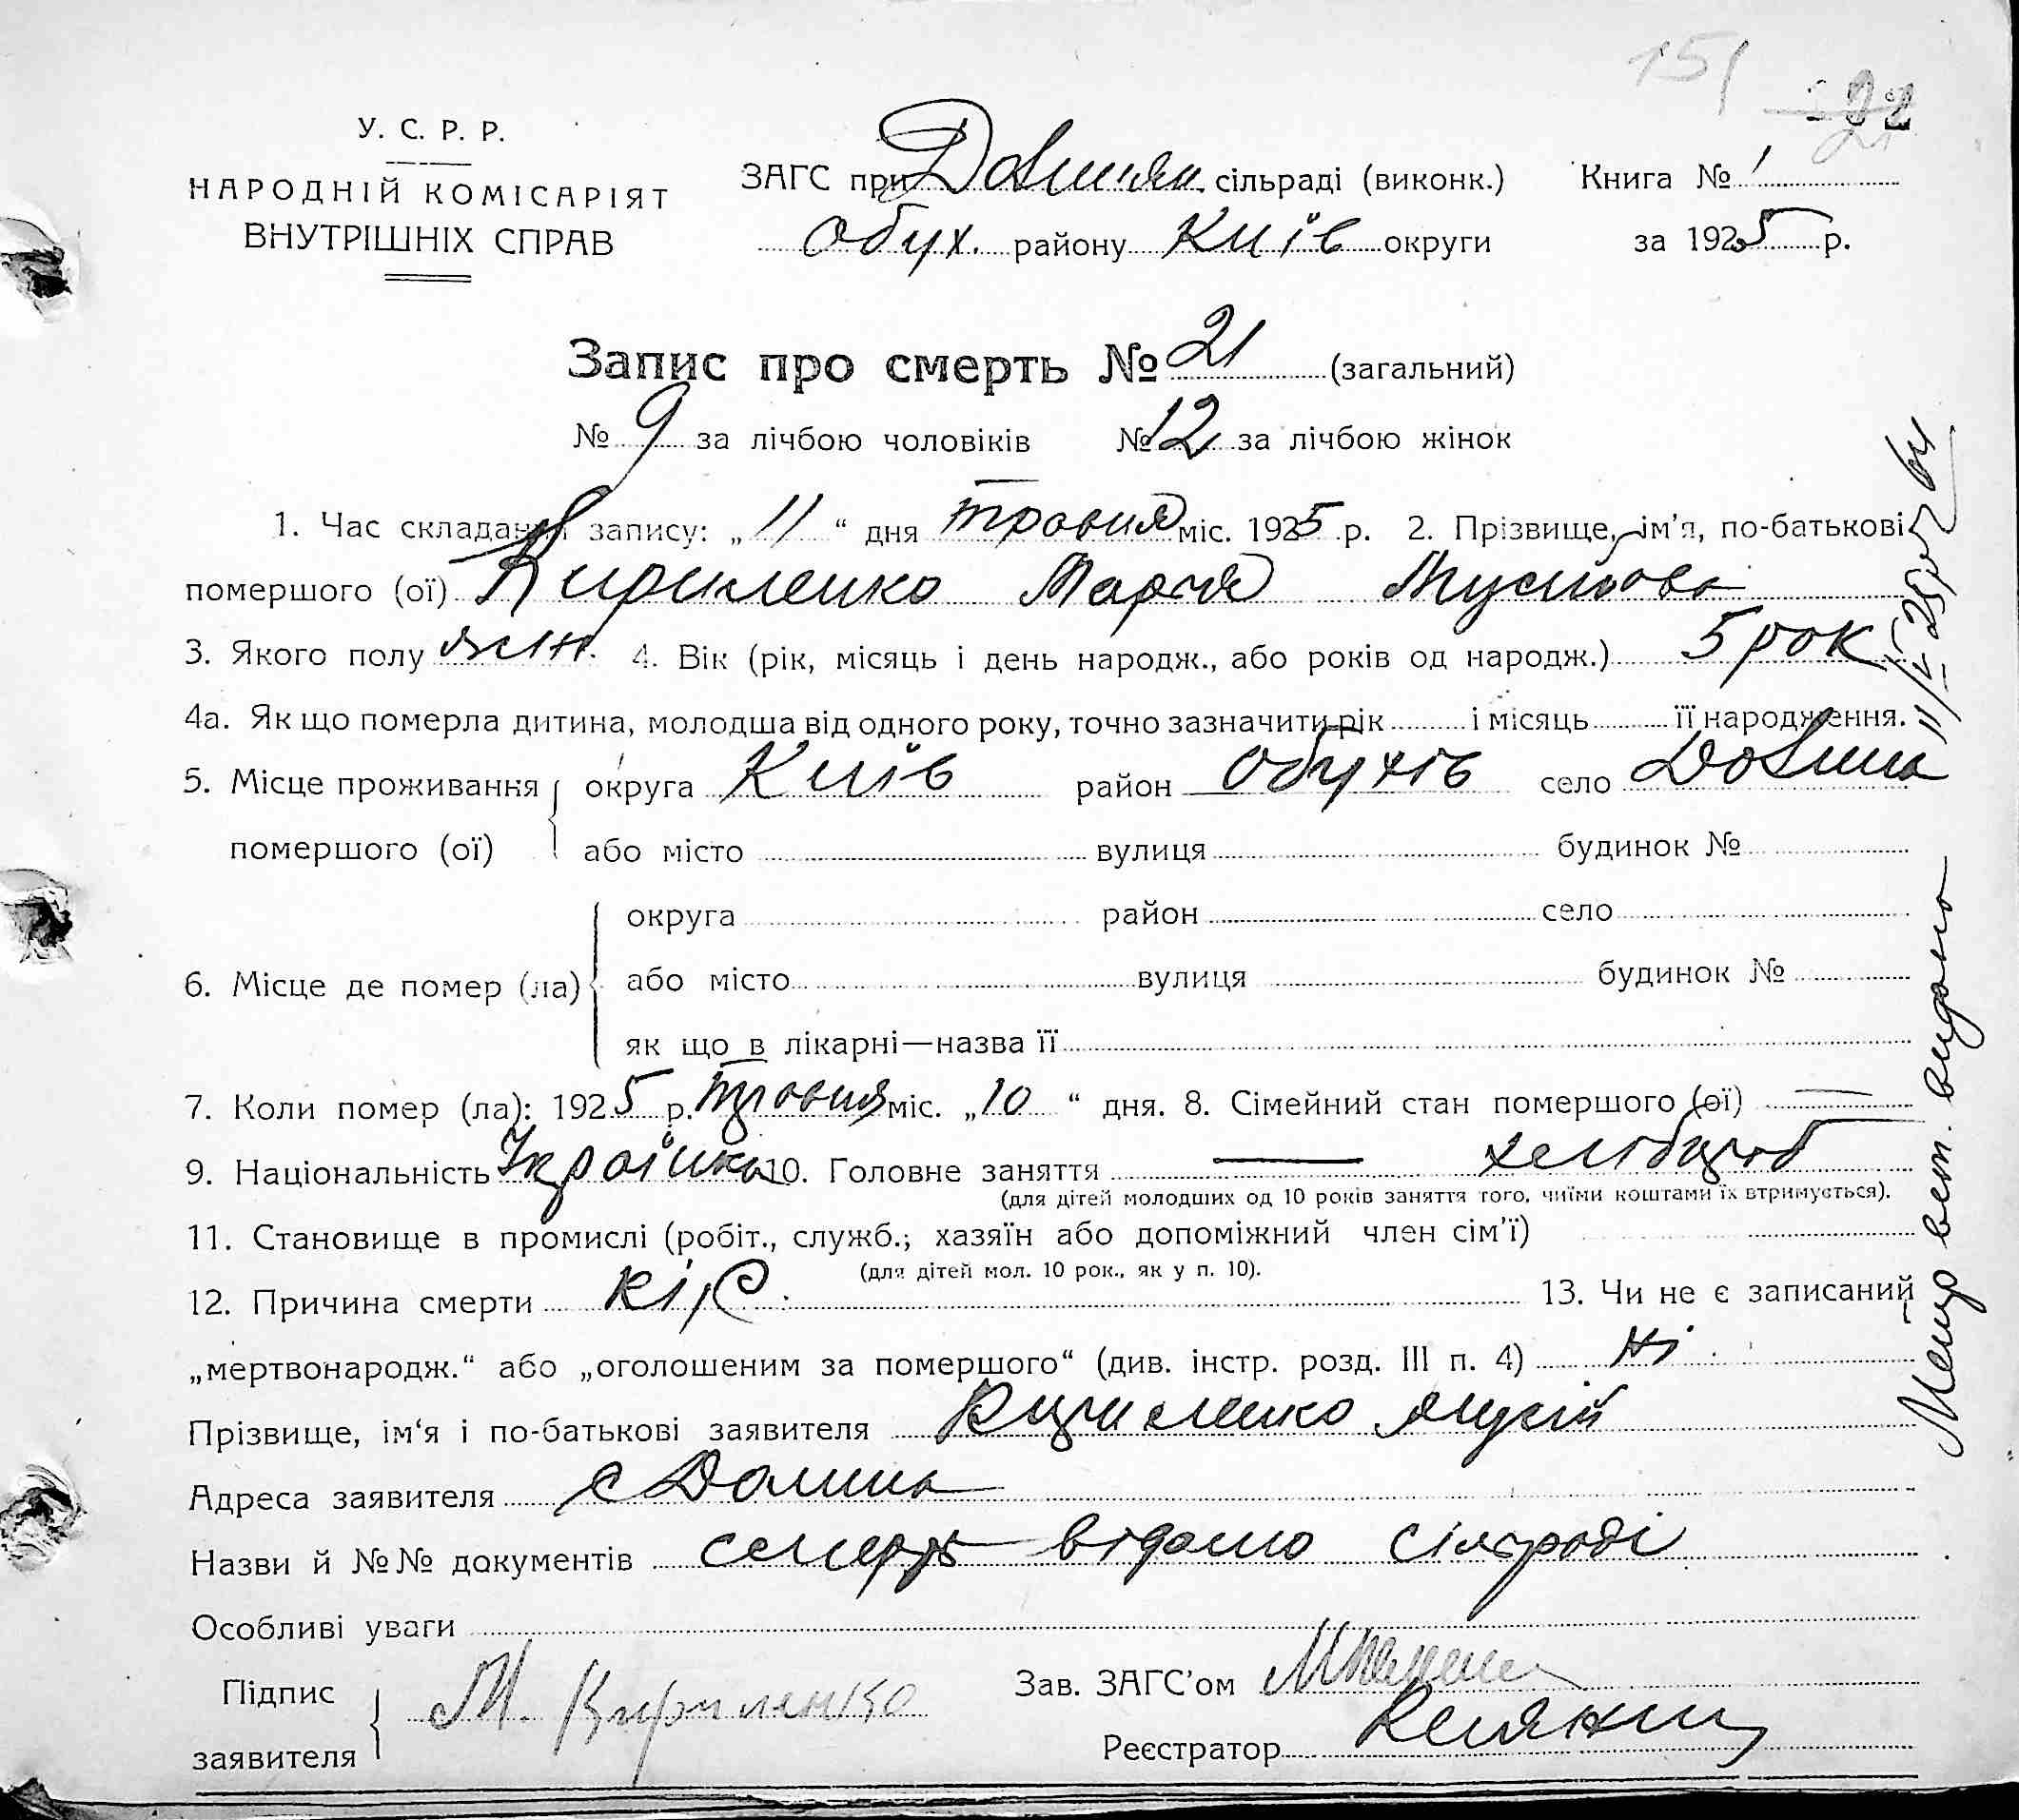 151
22
У. С. Р. Р.
НАРОДНІЙ КОМІСАРІЯТ
ВНУТРІШНІХ СПРАВ
ЗАГС при Долинян. сільраді (виконк.)
Обух. району Київ округи
Книга № 1
за 1925 р.
Запис про смерть № 21 (загальний)
№ 9 за лічбою чоловіків № 12 за лічбою жінок
1. Час складання запису: „ 11 “ дня травня міс. 1925 р. 2. Прізвище, ім'я, по-батькові
помершого (ої) Кириленко Марія Мусійова
3. Якого полу жін. 4. Вік (рік, місяць і день народж., або років од народж.) 5 рок
4а. Як що померла дитина, молодша від одного року, точно зазначити рік і місяць її народження.
5. Місце проживання округа Київ район Обухів село Долина
помершого (ої) або місто вулиця будинок №
округа район село
6. Місце де помер (ла) або місто вулиця будинок №
як що в лікарні—назва її
7. Коли помер (ла): 1925 р. травня міс. „ 10 “ дня. 8. Сімейний стан помершого (ої) —
9. Національність Українка 10. Головне заняття — хлібороб
(для дітей молодших од 10 років заняття того, чиїми коштами їх втримується).
11. Становище в промислі (робіт., служб.; хазяїн або допоміжний член сім'ї)
(для дітей мол. 10 рок., як у п. 10).
12. Причина смерти кір. 13. Чи не є записаний
„мертвонародж.“ або „оголошеним за помершого“ (див. інстр. розд. III п. 4) ні
Прізвище, ім‘я і по-батькові заявителя Кириленко Мусій
Адреса заявителя с Долина
Назви й №№ документів смерть відомо сільраді
Особливі уваги
Підпис
заявителя М. Кириленко
Зав. ЗАГС'ом
Реєстратор
видано
11/V-25р